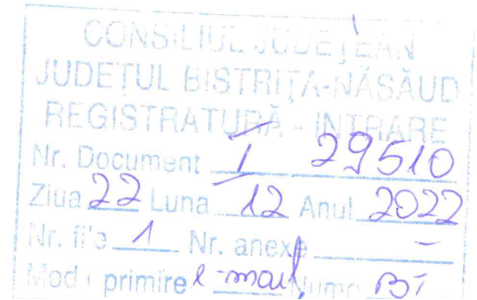 CONSILIUL JUDEȚEAN
JUDEȚUL BISTRIȚA-NĂSĂUD
REGISTRATURĂ - INTRARE
Nr. Document I 29510
Ziua 22 Luna 12 Anul 2022
Nr. file 1 Nr. anexe -
Mod primire e-mail